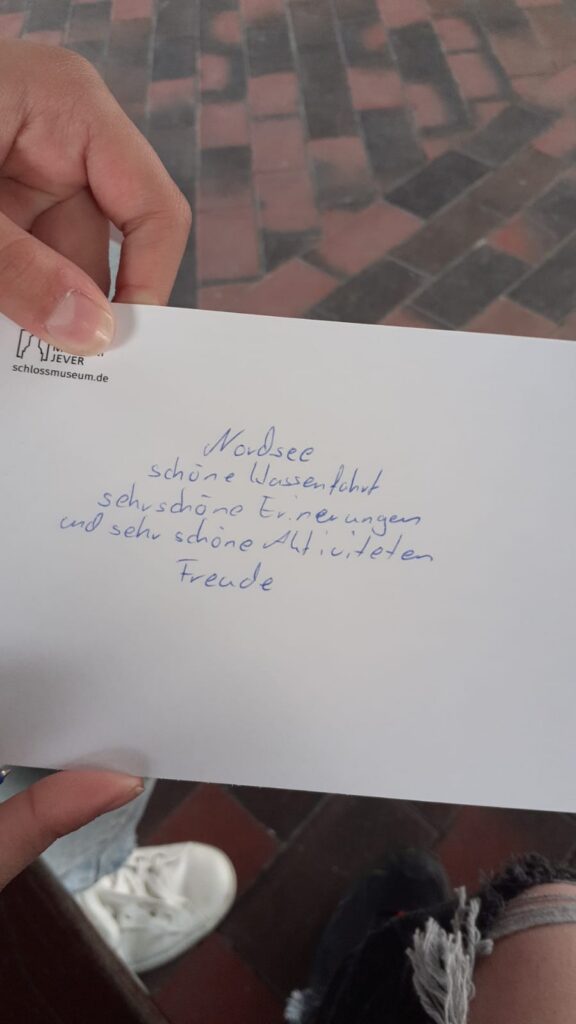 JEVER
schlossmuseum.de
Nordsee
schöne Wassenfahrt
sehr schöne Erinerungen
und sehr schöne Aktiviteten
Freude